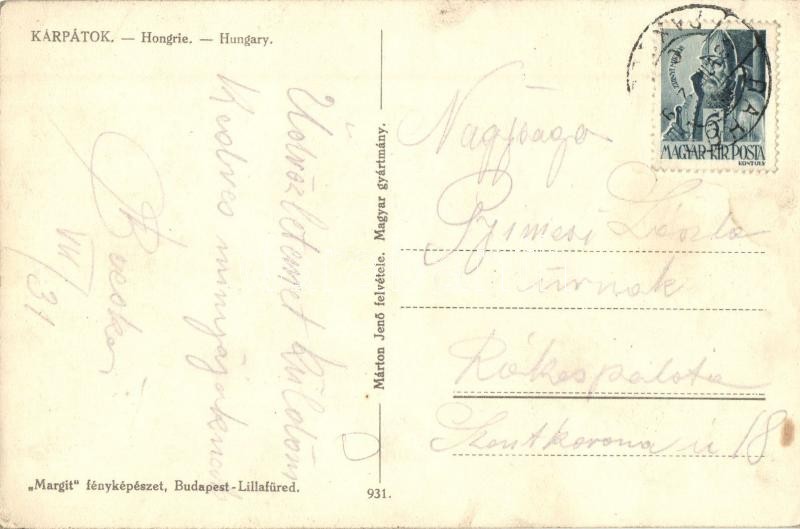 KÁRPÁTOK. — Hongrie. — Hungary.
Üdvözletemet küldöm
Kedves mindnyájuknak
VIII/31
Márton Jenő felvétele. Magyar gyártmány.
„Margit" fényképészet, Budapest-Lillafüred.
931.
6
MAGYAR KIR POSTA
KONTULY
Nagysága
Szimesi László
úrnak
Rákospalota
Szentkorona ú 18